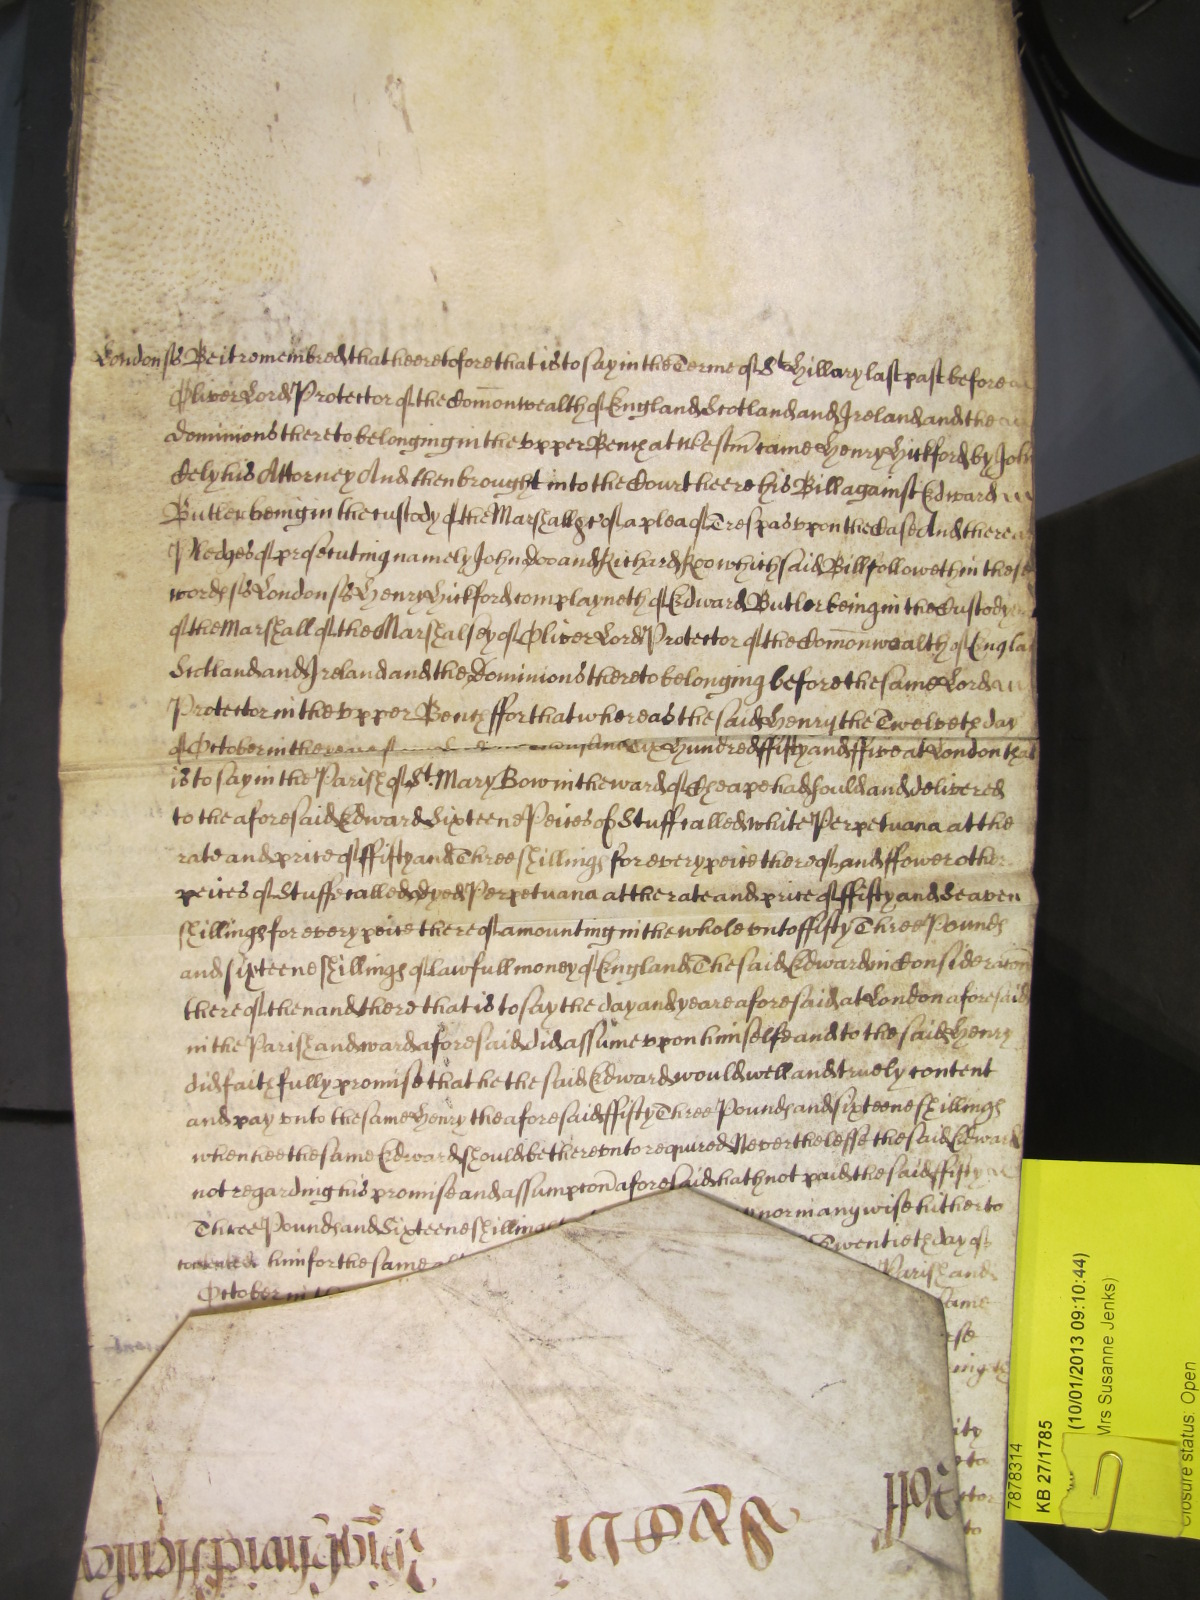 London ss Be it remembred that heeretofore that is to say in the Terme of St Hillary last past before
Oliver Lord Protector of the Com̄onwealth of England Scotland and Ireland and the
dominions thereto belonging in the upper Bench at Westm̄ came Henry Hickford by John
Cely his Attorney And then brought into the Court heere his Bill against Edward
Butler being in the custody of the Marshall &c of a plea of Trespas upon the Case And there
Pledges of prosecuting namely John Doo and Richard Roo which said Bill followeth in these
words ss London ss Henry Hickford complayneth of Edward Butler being in the Custody
of the Marshall of the Marshalsey of Oliver Lord Protector of the Com̄onwealth of Engla
Scotland and Ireland and the Dominions thereto belonging before the same Lord
Protector in the upper Bench ffor that whereas the said Henry the Twelveth day
of October in the six Hundred ffifty and ffive at London that
is to say in the Parish of St. Mary Bow in the ward of Cheape had sould and delivered
to the aforesaid Edward Sixteene Peices of Stuff called white Perpetuana at the
rate and price of ffifty and Three shillings for every peice thereof and ffower other
peices of Stuffe called dyed Perpetuana at the rate and price of ffifty and Seaven
shillings for every peice thereof amounting in the whole unto ffifty Three Pounds
and sixteene shillings of lawfull money of England The said Edward in Consideraćon
thereof then and there that is to say the day and yeare aforesaid at London aforesaid
in the Parish and ward aforesaid did assume upon himselfe and to the said Henry
did faithfully promise that he the said Edward would well and truely content
and pay unto the same Henry the aforesaid ffifty Three Pounds and sixteene shillings
when hee the same Edward should be thereunto required Neverthelesse the said Edward
not regarding his promise and assumpcōn aforesaid hath not paid the said ffifty
Three Pounds and Sixteene shillings nor any wise hitherto
him for the same Twentieth day of
October in Parish and
same
ity
7878314
KB 27/1785
(10/01/2013 09:10:44)
Mrs Susanne Jenks)
Closure status: Open